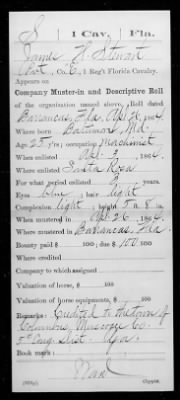 S | 1 Cav. | Fla.
James H. Stewart
Pvt., Co. E, 1 Reg't Florida Cavalry.
Appears on
Company Muster-in and Descriptive Roll
of the organization named above. Roll dated
Barrancas, Fla, Apr 26, 1864.
Where born Baltimore, Md.
Age 25 y'rs; occupation Machinist
When enlisted Apr. 2, 1864.
Where enlisted Santa Rosa
For what period enlisted 3 years.
Eyes blue; hair light
Complexion light; height 5 ft. 8 in.
When mustered in Apr 26, 1864.
Where mustered in Barrancas, Fla.
Bounty paid $ 100; due $ 100 100
Where credited
Company to which assigned
Valuation of horse, $ 100
Valuation of horse equipments, $ 100
Remarks: Credited to the town of
Columbus, Muscogee Co.
Book mark:
(339g) Copyist.